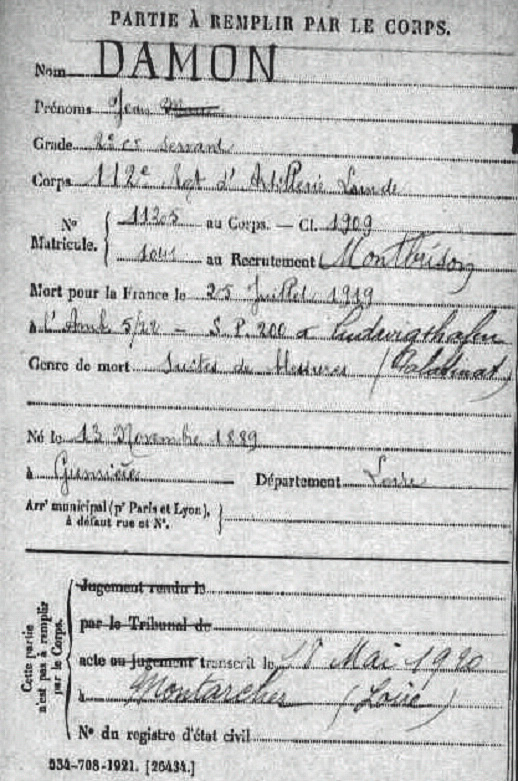 PARTIE À REMPLIR PAR LE CORPS.
Nom DAMON
Prénoms Jean
Grade 2e cr servant
Corps 112e Rgt d'Artillerie Lourde
No 11205 au Corps. — Cl. 1909
Matricule. au Recrutement Montbrison
Mort pour la France le 25 Juillet 1919
à l'Amb 5/22 - S.P. 200 à Ludwigshafen
Genre de mort suites de Blessures (Palatinat)
Né le 13 Novembre 1889
à Département Loire
Arrt municipal (pr Paris et Lyon),
à défaut rue et No.
Cette partie
n'est pas à remplir
par le Corps.
Jugement rendu le
par le Tribunal de
acte ou jugement transcrit le 18 Mai 1920
à Montarcher (Loire)
No du registre d'état civil
534-708-1921. [26434.]